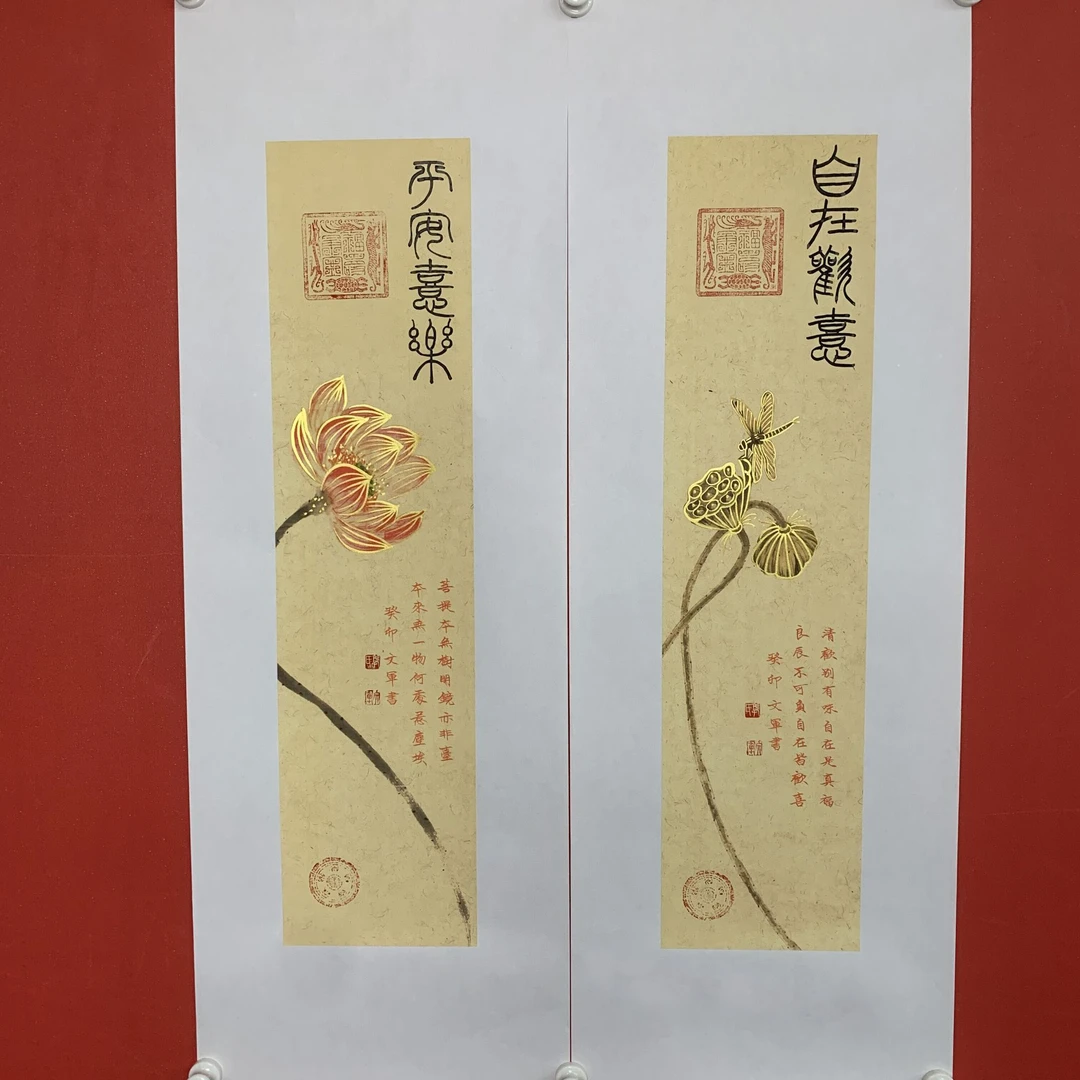 平安憙樂
菩提本無樹明鏡亦非臺
本來無一物何處惹塵埃
癸卯文軍書
自在觀憙
清歡別有味自在是真福
良辰不可負自在皆歡喜
癸卯文軍書